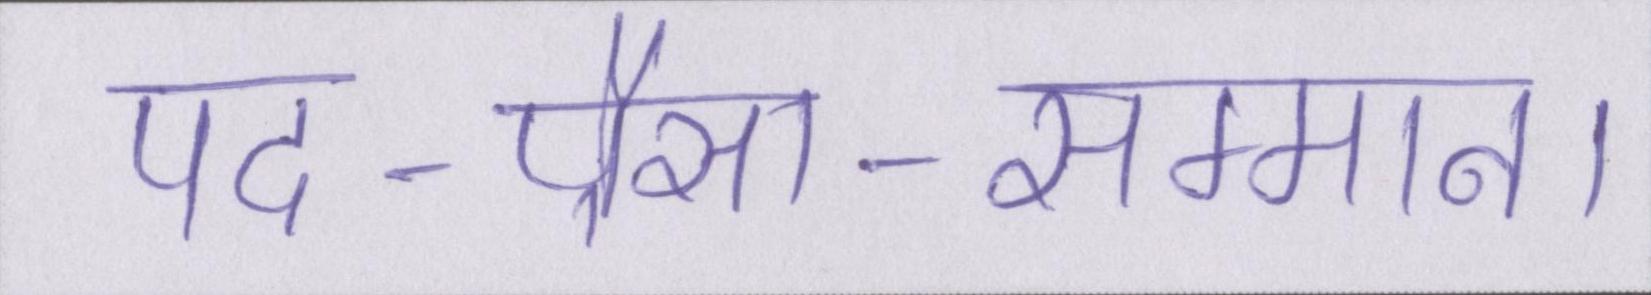 पद-पैसा-सम्मान।